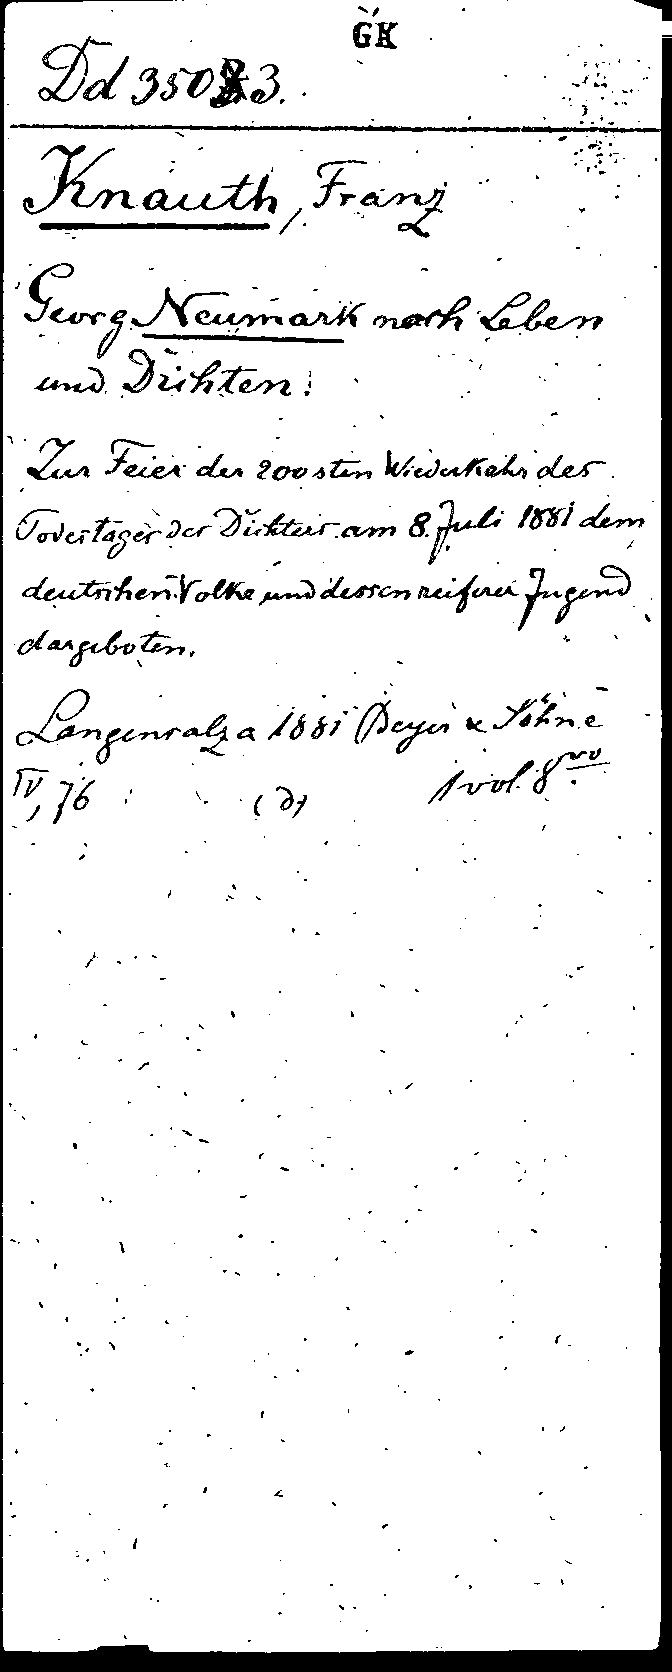 GK
Dd 35033.
Knauth, Franz
Georg Neumark nach Leben
und Dichten.
Zur Feier der 200sten Wiederkehr des
Todestages des Dichters am 8. Juli 1881 dem
deutschen Volke und dessen reiferer Jugend
dargeboten.
Langensalza 1881 Beyer & Söhne
IV, 76 (d) 1 vol. 8vo.